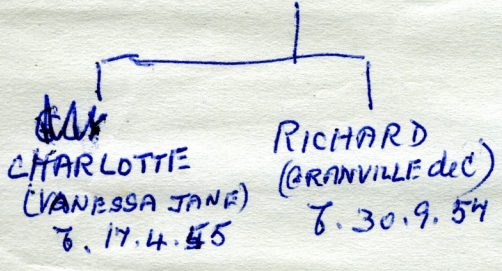 CHARLOTTE
(VANESSA JANE)
b. 17.4.55
RICHARD
(GRANVILLE deC)
b. 30.9.57